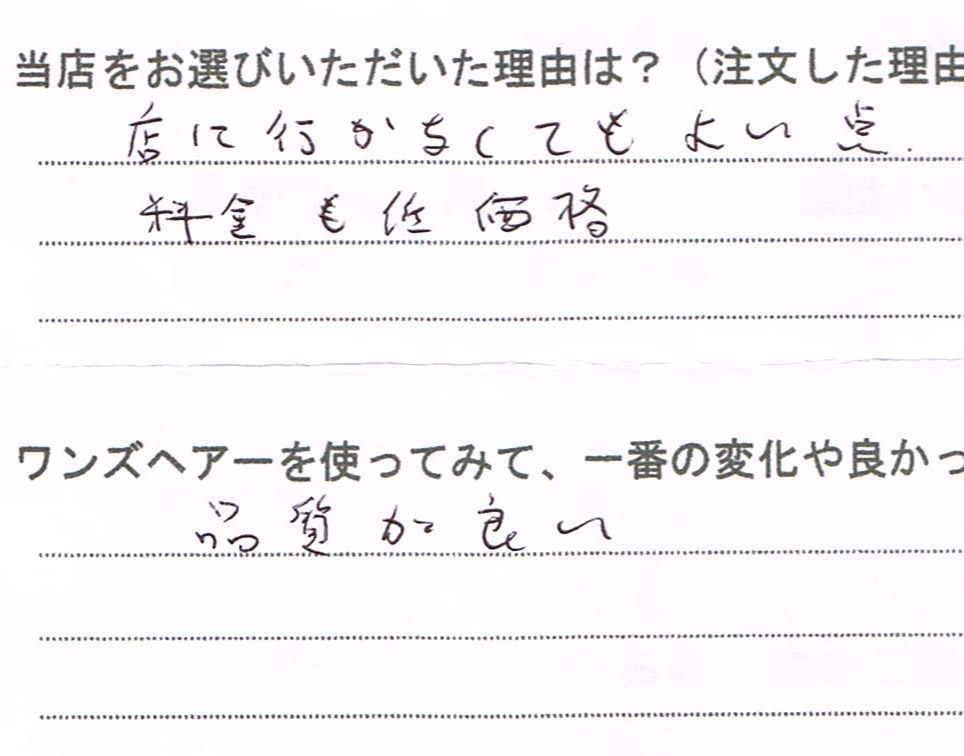 当店をお選びいただいた理由は？（注文した理由
店に行かなくてもよい点.
料金も低価格
ワンズヘアーを使ってみて、一番の変化や良かっ
品質が良い